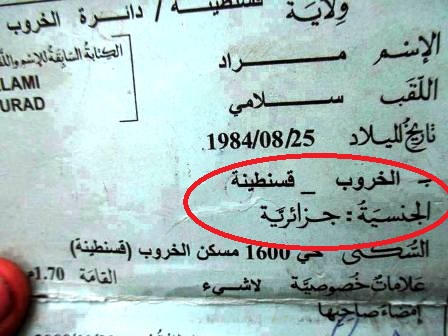 ولاية قسنطينة / دائرة الخروب
الكتابة السابقة للإسم واللقب
LAMI
URAD
الإسم مراد
اللقب سلامي
تاريخ الميلاد 1984/08/25
بـ الخروب _ قسنطينة
الجنسية : جزائرية
السكنى حي 1600 مسكن الخروب (قسنطينة)
علامات خصوصية لاشيء القامة 1.70م
إمضاء صاحبها